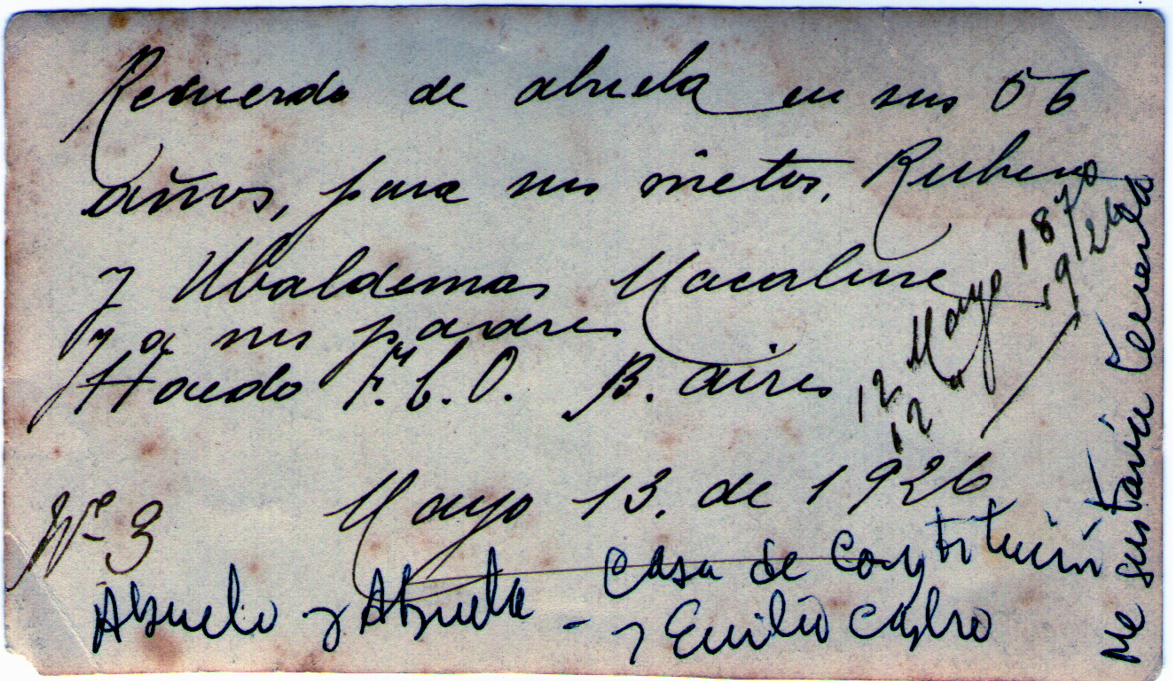 Recuerdo de abuela en sus 56
años, para sus nietos, Ruben
y Ubaldemar
y a sus padres
Haedo F.C.O. B. aires
12 Mayo 1870
12 " 1926
Mayo 13. de 1926
Nº 3
Abuelo y Abuela - Casa de Constitución
y Emilio Castro
Me gustaría tenerla